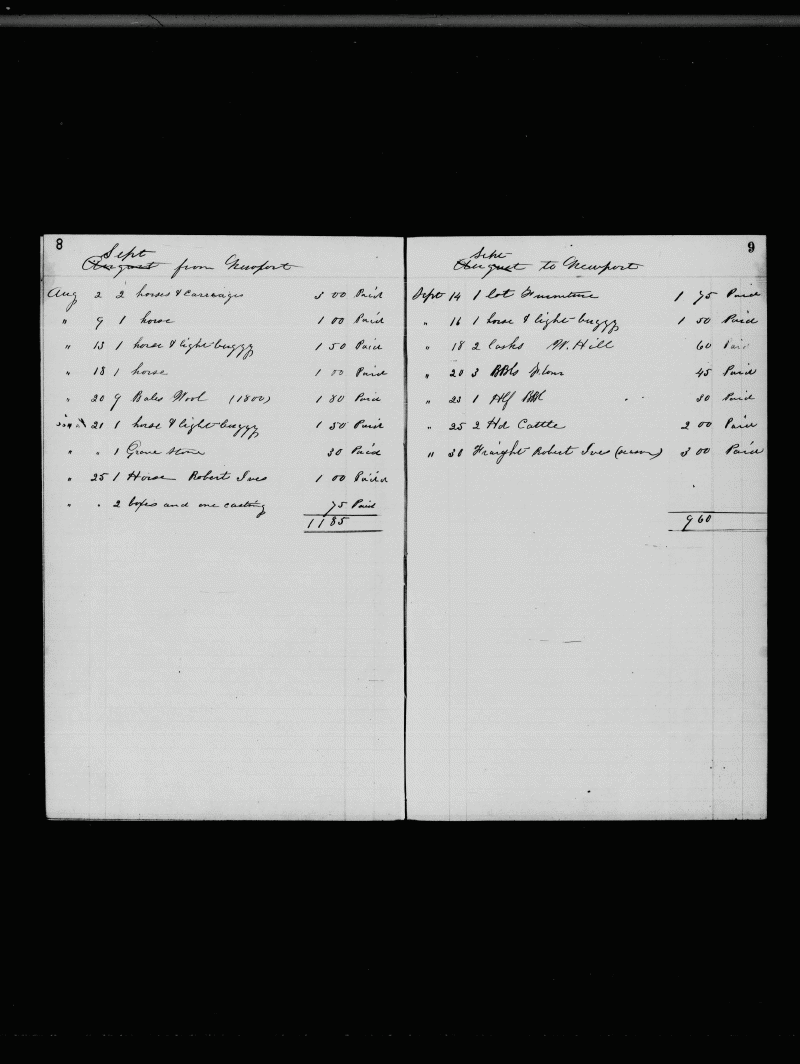 8
Sept
August from Newport
Aug 2 2 horses & Carriages 3 00 Paid
" 9 1 horse 1 00 Paid
" 13 1 horse & light-buggy 1 50 Paid
" 18 1 horse 1 00 Paid
" 20 9 Bales Wool (1800) 1 80 Paid
21 1 horse & light-buggy 1 50 Paid
" " 1 Grave Stone 30 Paid
" 25 1 Horse Robert Ives 1 00 Paid
" " 2 boxes and one casting 75 Paid
11 85
9
Sept
August to Newport
Sept 14 1 lot Furniture 1 75 Paid
" 16 1 horse & light-buggy 1 50 Paid
" 18 2 Casks W. Hill 60 Paid
" 20 3 BBls Flour 45 Paid
" 23 1 Hlf BBl 30 Paid
" 25 2 Hd Cattle 2 00 Paid
" 30 Fraight Robert Ives 3 00 Paid
9 60